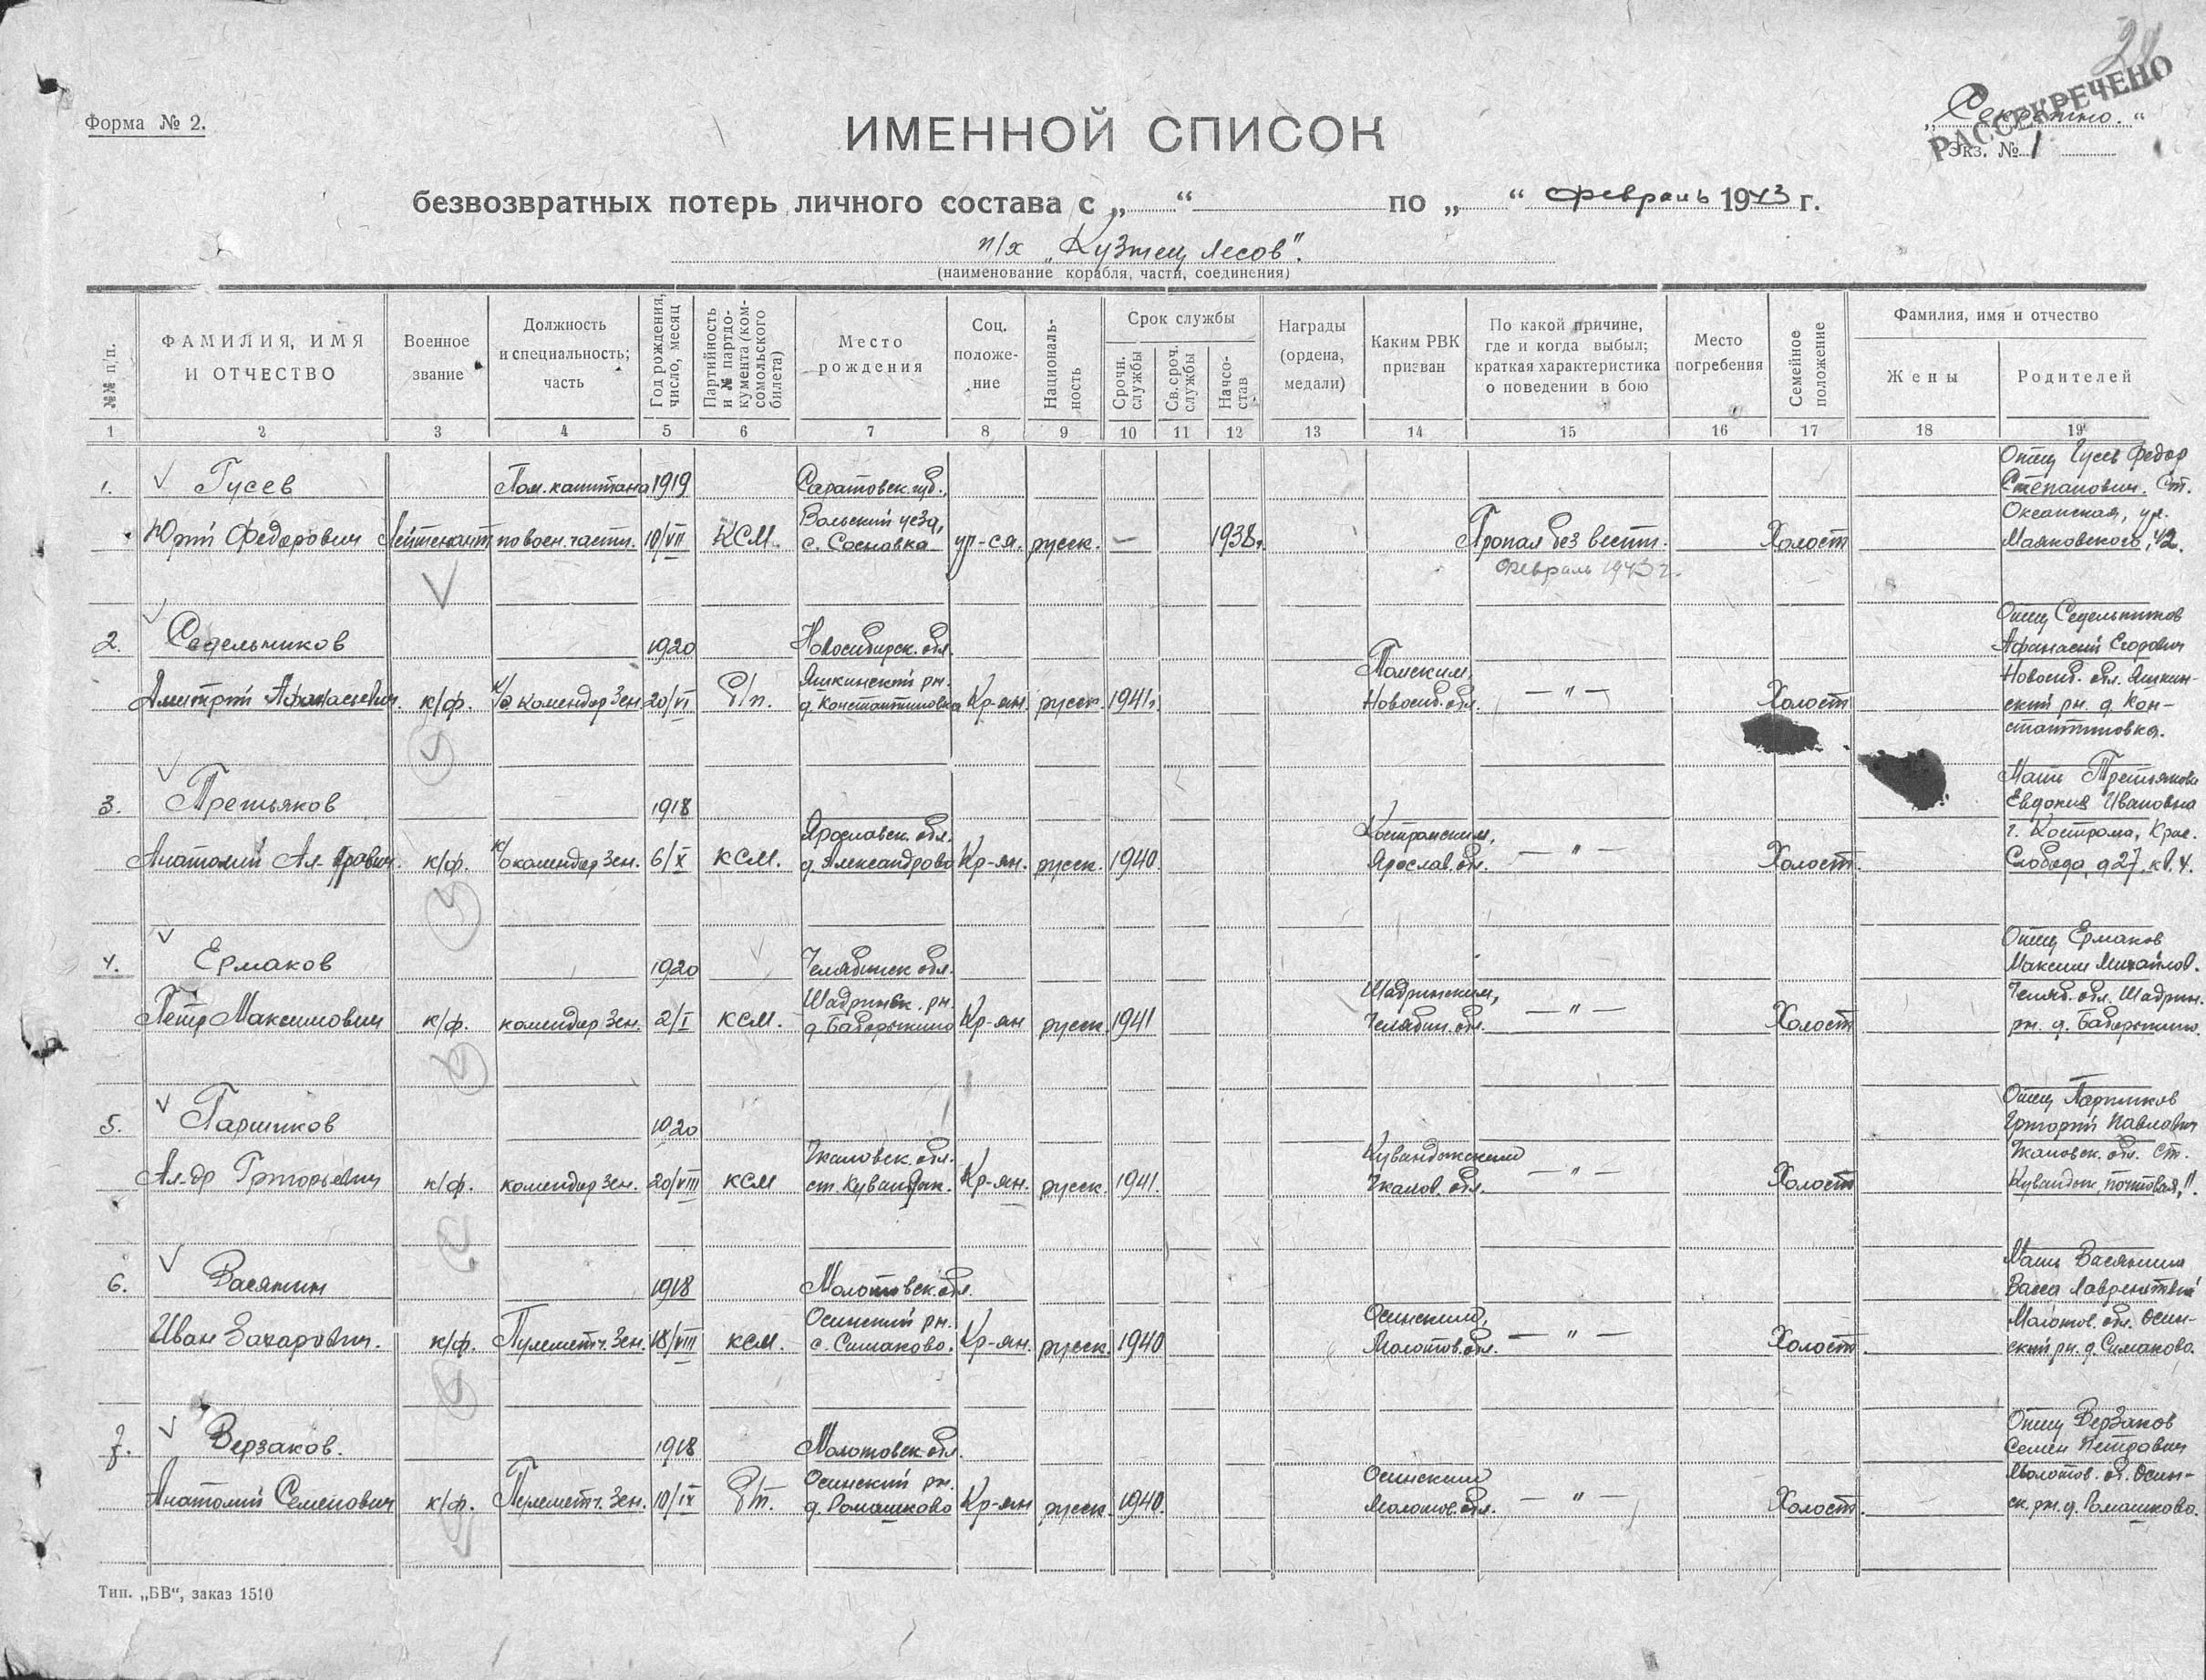 Форма № 2.
ИМЕННОЙ СПИСОК
„Секретно.“
РАССЕКРЕЧЕНО
Экз. № 1
безвозвратных потерь личного состава с „ “ по „ “ февраль 1943 г.
п/х „Кузнец Лесов“.
(наименование корабля, части, соединения)
№№ п/п.
ФАМИЛИЯ, ИМЯ
И ОТЧЕСТВО
Военное
звание
Должность
и специальность;
часть
Год рождения,
число, месяц
Партийность
и № партдо-
кумента (ком-
сомольского
билета)
Место
рождения
Соц.
положе-
ние
Националь-
ность
Срок службы
Срочн.
службы
Св.сроч.
службы
Начсо-
став
Награды
(ордена,
медали)
Каким РВК
призван
По какой причине,
где и когда выбыл;
краткая характеристика
о поведении в бою
Место
погребения
Семейное
положение
Фамилия, имя и отчество
Жены
Родителей
1 2 3 4 5 6 7 8 9 10 11 12 13 14 15 16 17 18 19
1. Гусев
Юрий Федорович
Лейтенант
Пом. капитана
по воен. части.
1919
10/VII
КСМ.
Саратовск. губ.,
Вольский уезд,
с. Сосновка
русск.
—
1938г.
Пропал без вести.
Февраль 1943 г.
Холост
Отец Гусев Федор
Степанович. Ст.
Океанская, ул.
Маяковского, 42.
2. Седельников
Дмитрий Афанасьевич
к/ф.
к/о комендор зен.
1920
20/VI
б/п.
Новосибирск. обл.
Яшкинский рн.
д. Константиновка
Кр-ян.
русск.
1941г.
Томским,
Новосиб. обл.
— " —
Холост
Отец Седельников
Афанасий Егорович
Новосиб. обл. Яшкин-
ский рн. д. Кон-
стантиновка.
3. Третьяков
Анатолий
к/ф.
к/о комендор зен.
1918
6/X
КСМ.
Ярославск. обл.
д. Александрово
Кр-ян.
русск.
1940
Костромским,
Ярослав. обл.
— " —
Холост.
Мать Третьякова
Евдокия Ивановна
г. Кострома, Крас.
Слобода, д 27, кв. 4.
4. Ермаков
Петр Максимович
к/ф.
комендор зен.
1920
2/I
КСМ.
Челябинск обл.
Шадринск. рн.
Кр-ян
русск.
1941
Шадринским,
Челябин. обл.
— " —
Холост
Отец Ермаков
Максим Михайлов.
Челяб. обл. Шадрин.
рн. д.
5. Паршиков
Ал-др Григорьевич
к/ф.
комендор зен.
1920
20/VIII
КСМ
Чкаловск. обл.
ст. Кувандык.
Кр-ян.
русск.
1941.
Кувандыкским
Чкалов. обл.
— " —
Холост
Отец Паршиков
Григорий Павлович
Чкаловск. обл. ст.
Кувандык, почтовая, 11.
6. Васянин
Иван Захарович.
к/ф.
Пулеметч. зен.
1918
18/VIII
КСМ.
Молотовск. обл.
Осинский рн.
с. Симаково.
Кр-ян.
русск.
1940
Осинским,
Молотов. обл.
— " —
Холост.
Мать Васянина
Васса
Молотов. обл. Осин-
ский рн. д. Симаково.
7. Верзаков.
Анатолий Семенович
к/ф.
Пулеметч. зен.
1918
10/IX
б/п.
Молотовск. обл.
Осинский рн.
д. Ромашково
Кр-ян
русск.
1940.
Осинским
Молотов. обл.
— " —
Холост.
Отец Верзаков
Семен Петрович
Молотов. об. Осин-
ск. рн. д. Ромашково.
Тип. „БВ“, заказ 1510